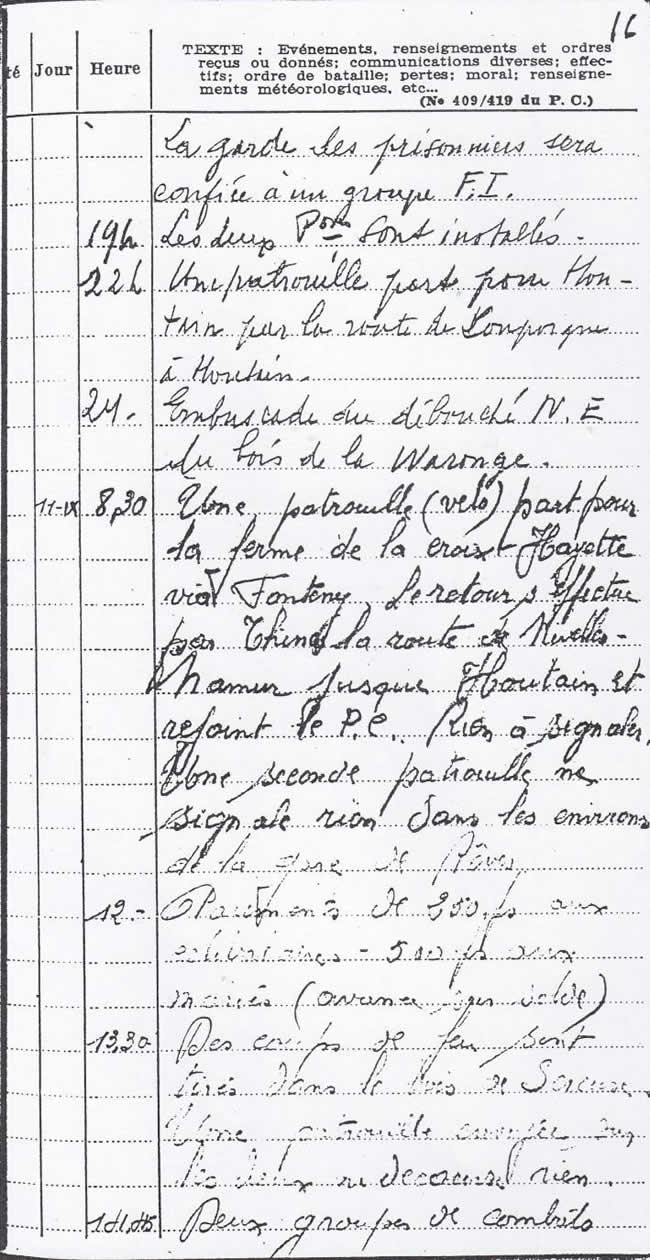 16
té Jour Heure
TEXTE : Evénements, renseignements et ordres
reçus ou donnés; communications diverses; effec-
tifs; ordre de bataille; pertes; moral; renseigne-
ments météorologiques, etc...
(No 409/419 du P. C.)
La garde des prisonniers sera
confiée à un groupe F.I.
19h Les deux Pons sont installés -
22h Une patrouille part pour Hou-
tain par la route de
à Houtain.
24. Embuscade au débouché N.E
du bois de la Waronge.
11-IX 8,30 Une patrouille (vélo) part pour
la ferme de la croix Hayette
via Fonteny. Le retour s'effectue
par Thines la route de Nivelles-
Namur jusque Houtain et
rejoint le P.C. Rien à signaler.
Une seconde patrouille ne
signale rien dans les environs
de la gare de Rêves
12.- Paiements de 250 fs aux
célibataires - 500 fs aux
mariés (avance sur solde)
13.30 Des coups de feu sont
tirés dans le bois de
Une patrouille envoyée sur
les lieux ne rien.
14.45 Deux groupes de combats